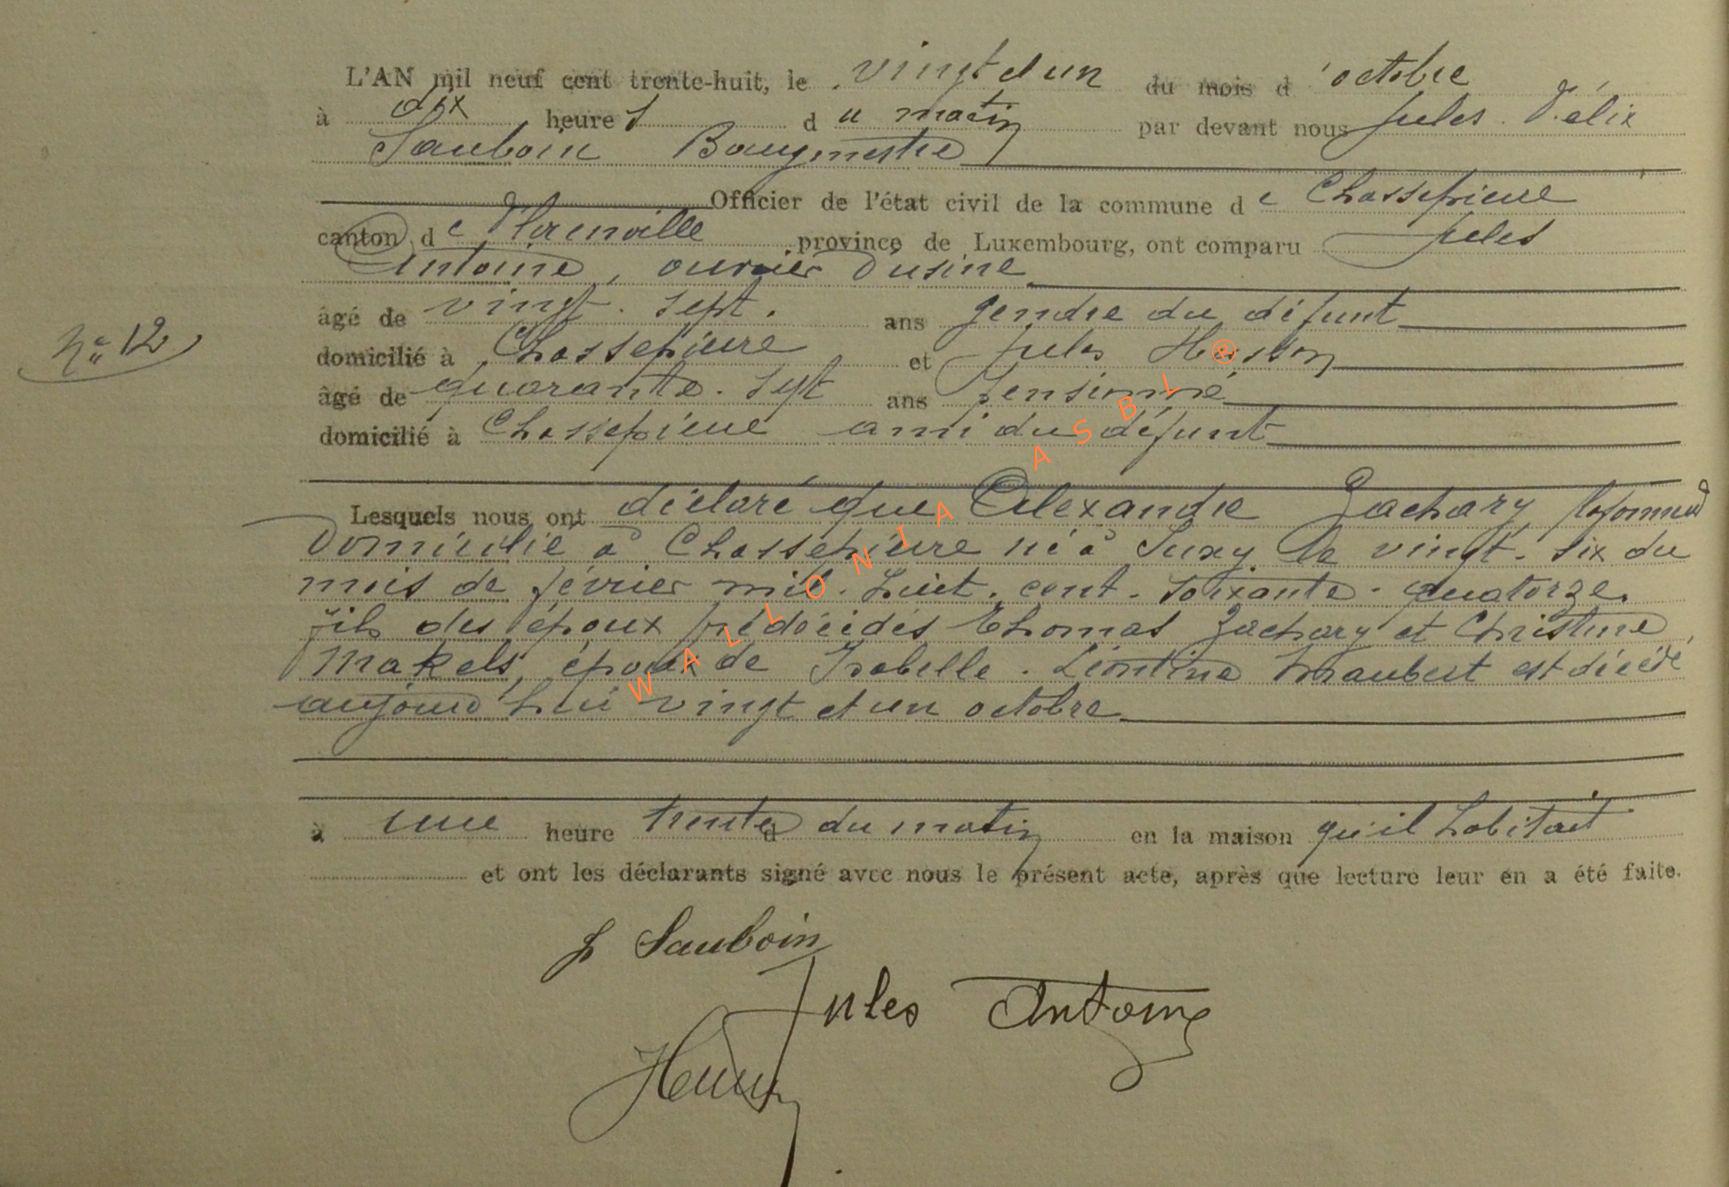 L'AN mil neuf cent trente-huit, le vingt et un du mois d'octobre
à dix heures du matin par devant nous Jules Félix
Sauboin Bourgmestre
Officier de l'état civil de la commune de Chassepierre
canton de Florenville province de Luxembourg, ont comparu Jules
Antoine, ouvrier d'usine
âgé de vingt-sept ans gendre du défunt
Nº 12
domicilié à Chassepierre et Jules
âgé de quarante-sept ans pensionné
domicilié à Chassepierre ami du défunt
Lesquels nous ont déclaré que Alexandre Zachary
domicilié à Chassepierre né à Suxy le vingt-six du
mois de février mil-huit-cent-soixante-quatorze.
fils des époux prédécédés Thomas Zachary et Christine
Makels, époux de Isabelle-Léontine Maubert est décédé
aujourd'hui vingt et un octobre
à une heure trente du matin en la maison qu'il habitait
et ont les déclarants signé avec nous le présent acte, après que lecture leur en a été faite.
J Sauboin
Jules Antoine
WALLONIA ASBL ©